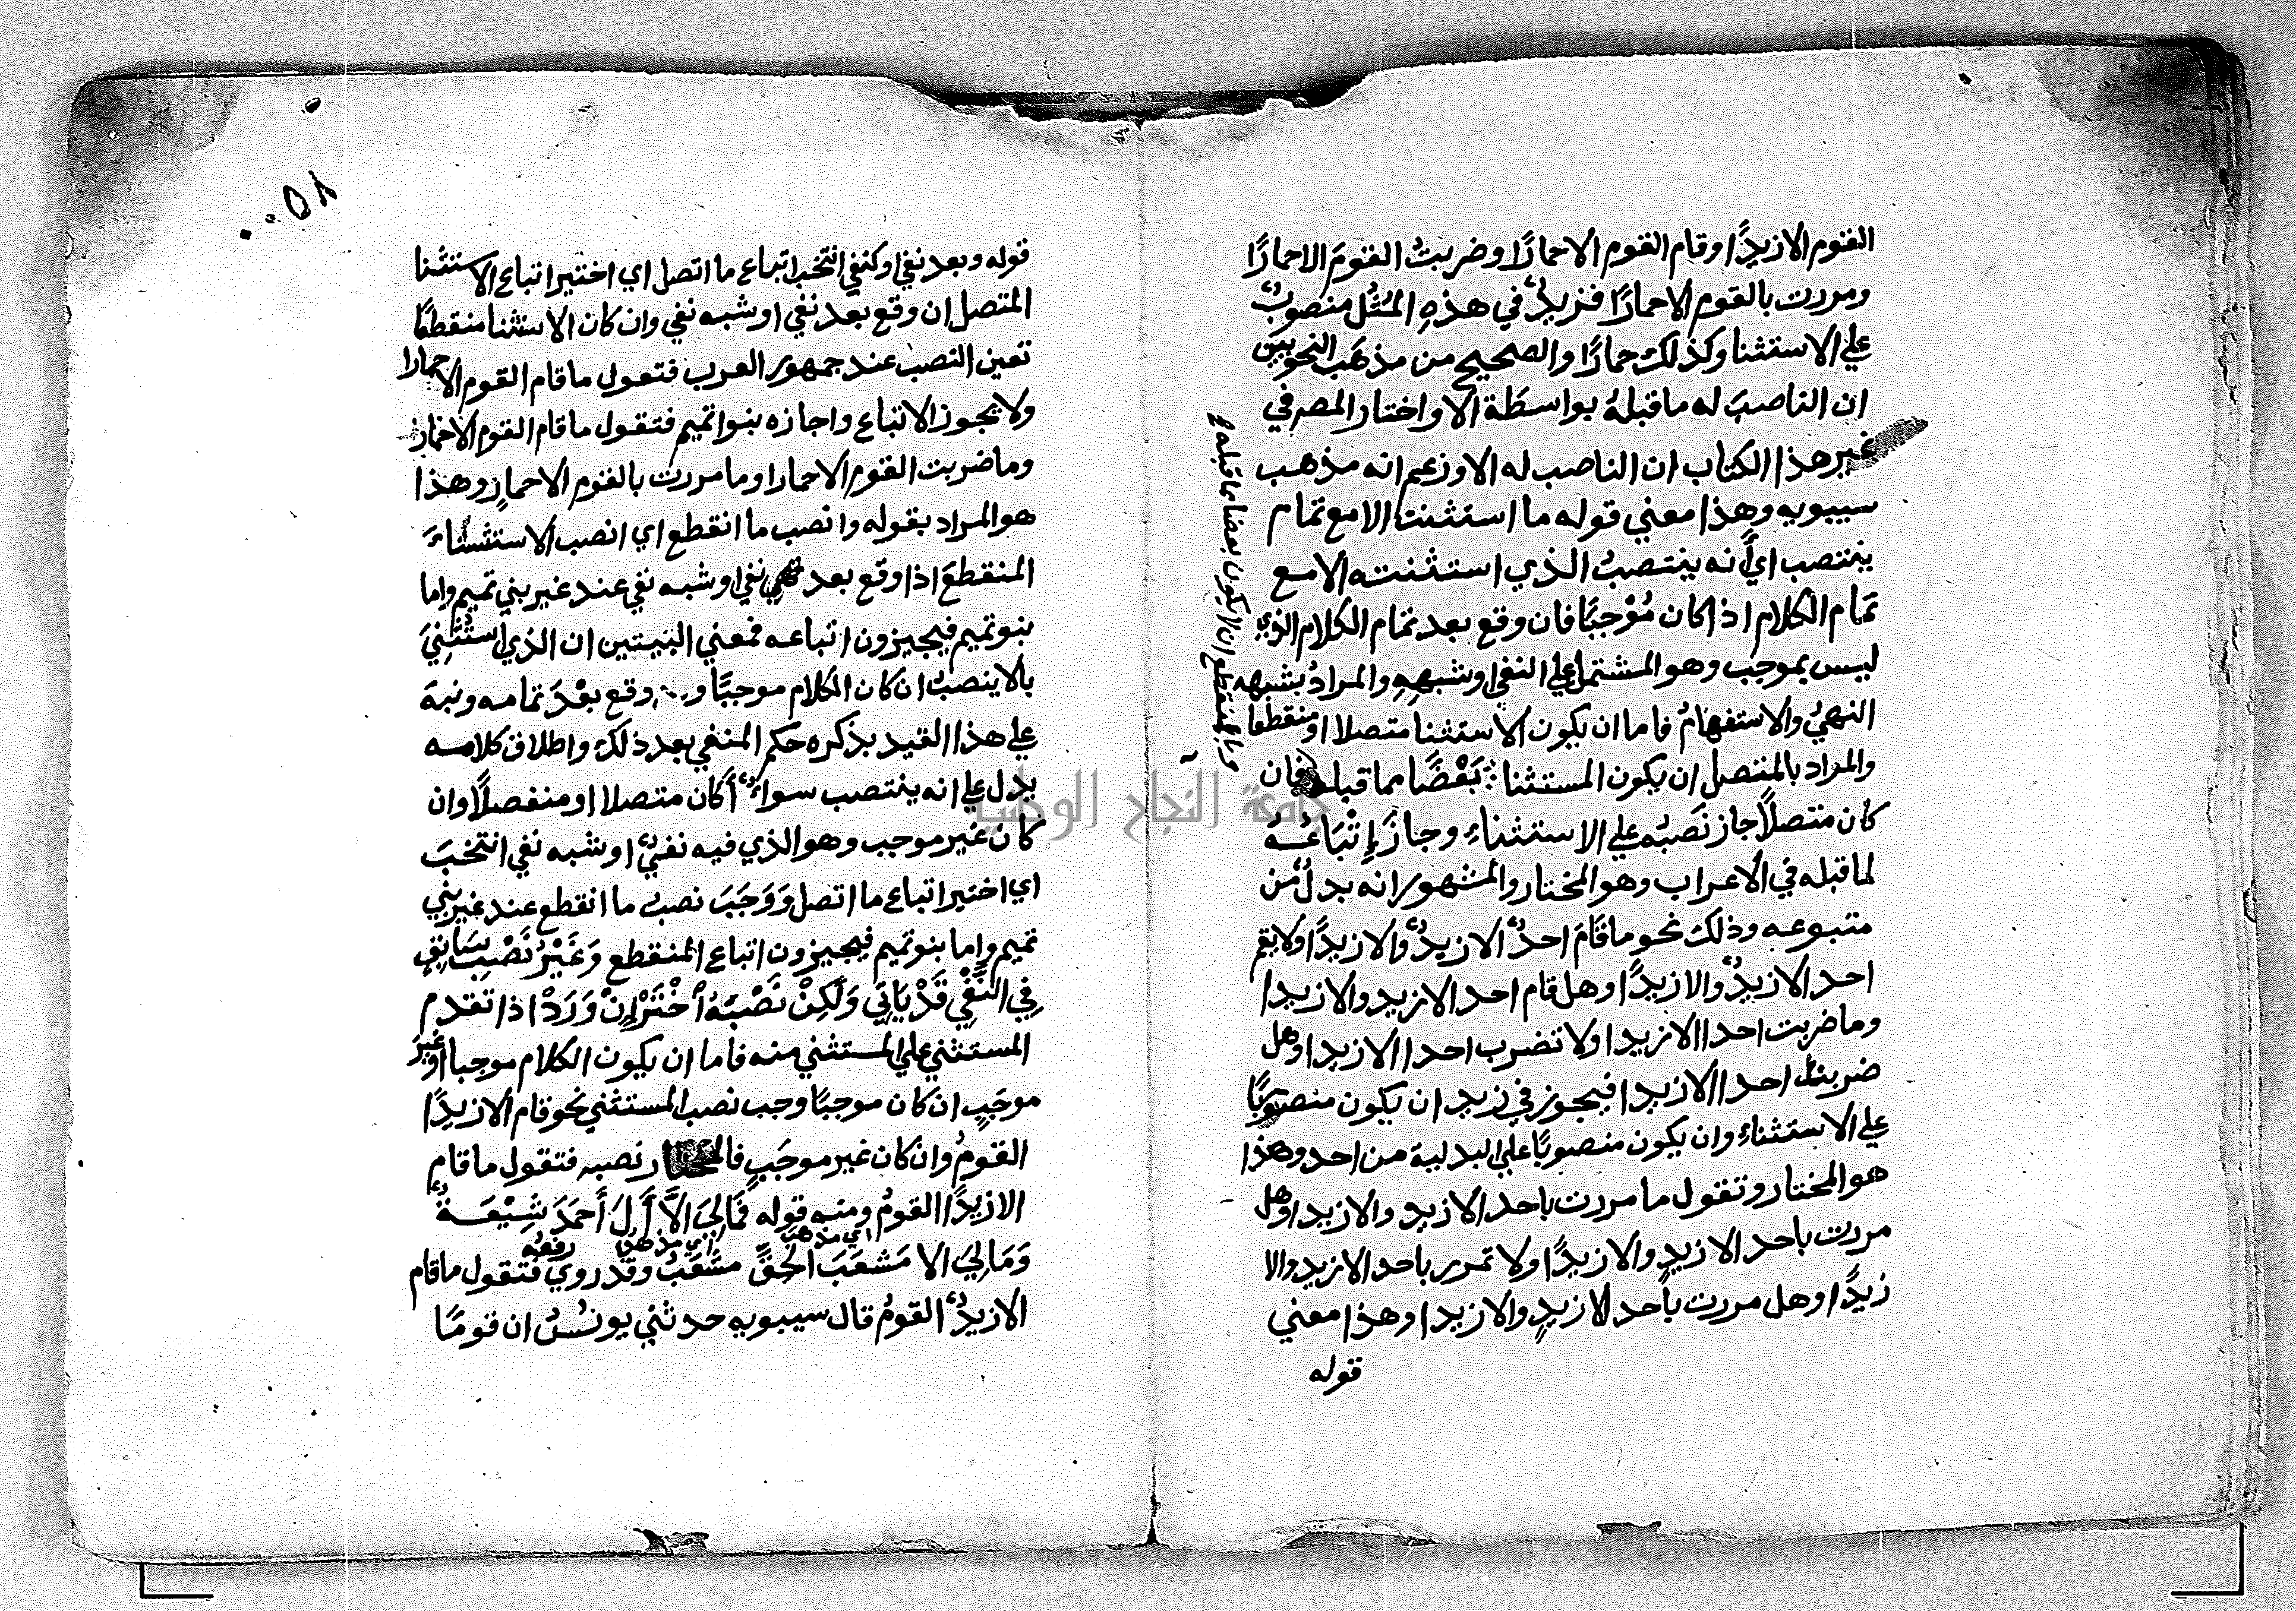 القوم الا زيدًا وقام القوم الا حمارًا وضربتُ القومَ الا حمارًا
ومررت بالقوم الا حمارًا فزيدٌ في هذهِ المُثُل منصوبٌ
علي الاستثنا وكذلك حمارًا والصحيح من مذهَب النحويين
ان الناصبَ له ما قبلهُ بواسطَة الا واختار المصر في
غير هذا الكتاب ان الناصب له الا وزعم انه مذهب
سيبويه وهذا معني قوله ما استثنت الا مع تمام
ينتصب اي أنه ينتصبُ الذي استثنته الا مع
تمام الكلام اذا كان مُوْجبًا فان وقع بعد تمام الكلام الذي
ليس بموجب وهو المشتمل علي النفي او شبههِ والمرادُ بشبهه
النهيُ والاستفهامُ فاما ان يكون الاستثنا متصلا او منقطعا
والمراد بالمتصل ان يكون المستثنا بَعْضًا مما قبله فان
كان متصلًا جاز نَصبُه علي الاستثناءِ وجازَ إِتْبَاعُهُ
لما قبله في الاعراب وهو المختار والمشهور انه بدلٌ من
متبوعه وذلك نحو ما قَامَ احدٌ الا زيدٌ والا زيدًا ولا يقم
احد الا زيدٌ والا زيدًا وهل قام احد الا زيد والا زيدا
وما ضربت احدا الا زيدا ولا تضرب احدا الا زيدا وهل
ضربت احدا الا زيدا فيجوز في زيد ان يكون منصوبًا
علي الاستثناءِ وان يكون منصوبًا علي البدلية من احد وهذا
هو المختار وتقول ما مررت باحد الا زيدٍ والا زيدا وهل
مررت باحد الا زيدٍ والا زيدًا ولا تمرر باحد الا زيد والا
زيدًا وهل مررت بأحد الا زيدٍ والا زيدا وهذا معني
قوله
وبالمنقطع ان لا يكون بعضا مما قبله
٠٠٥٨
قوله وبعد نفي او كنفي انتخب اتباع ما اتصل اي اختير اتباع الاستثنا
المتصل ان وقع بعد نفي او شبه نفي وان كان الاستثنا منقطعًا
تعين النصب عند جمهور العرب فتقول ما قام القوم الا حمارا
ولا يجوز الاتباع واجازه بنوا تميم فتقول ما قام القوم الا حمار
وما ضربت القوم الا حمارا وما مررت بالقوم الا حمارٍ وهذا
هو المراد بقوله وانصب ما انقطع اي انصب الاستثناءَ
المنقطعَ اذا وقع بعد نفي او شبه نفي عند غير بني تميم واما
بنو تميم فيجيزون اتباعه فمعني البيتين ان الذي استُثْنِيَ
بالا ينصبُ ان كان الكلام موجبًا و وقع بعْدَ تمامه ونبه
علي هذا القيد بذكره حكم المنفي بعد ذلك واطلاق كلامه
يدل علي انه ينتصب سواءٌ أكان متصلا او منفصلًا وان
كان غير موجب وهو الذي فيه نفيٌ او شبه نفي انتخبَ
اي اختير اتباع ما اتصل وَوَجَبَ نصبُ ما انقطع عند غير بني
تميم واما بنو تميم فيجيزون اتباع المنقطع وَغَيْرُ نَصْبِ سَابِقٍ
فِي النَّفْيِ قَدْ يَاتِي وَلَكِنْ نَصْبَهُ اخْتَرْ إِنْ وَرَدْ اذا تقدم
المستثني علي المستثني منه فاما ان يكون الكلام موجبا او غير
موجَبٍ ان كان موجبًا وجب نصب المستثني نحو قام الا زيدًا
القومُ وان كان غير موجَبٍ فالمختار نصبه فتقول ما قام
الا زيدًا القومُ ومنه قوله فَمَالِيَ الاَّ أَلَ أَحمَدَ شِيْعَةٌ
اي مذهب اي مذهب رفعه
وَمَالِيَ الا مَشعَبَ الحقِّ مشعَبُ وقد روي فتقول ما قام
الا زيدٌ القومُ قال سيبويه حدثني يونُسُ ان قومًا
جامعة النجاح الوطنية